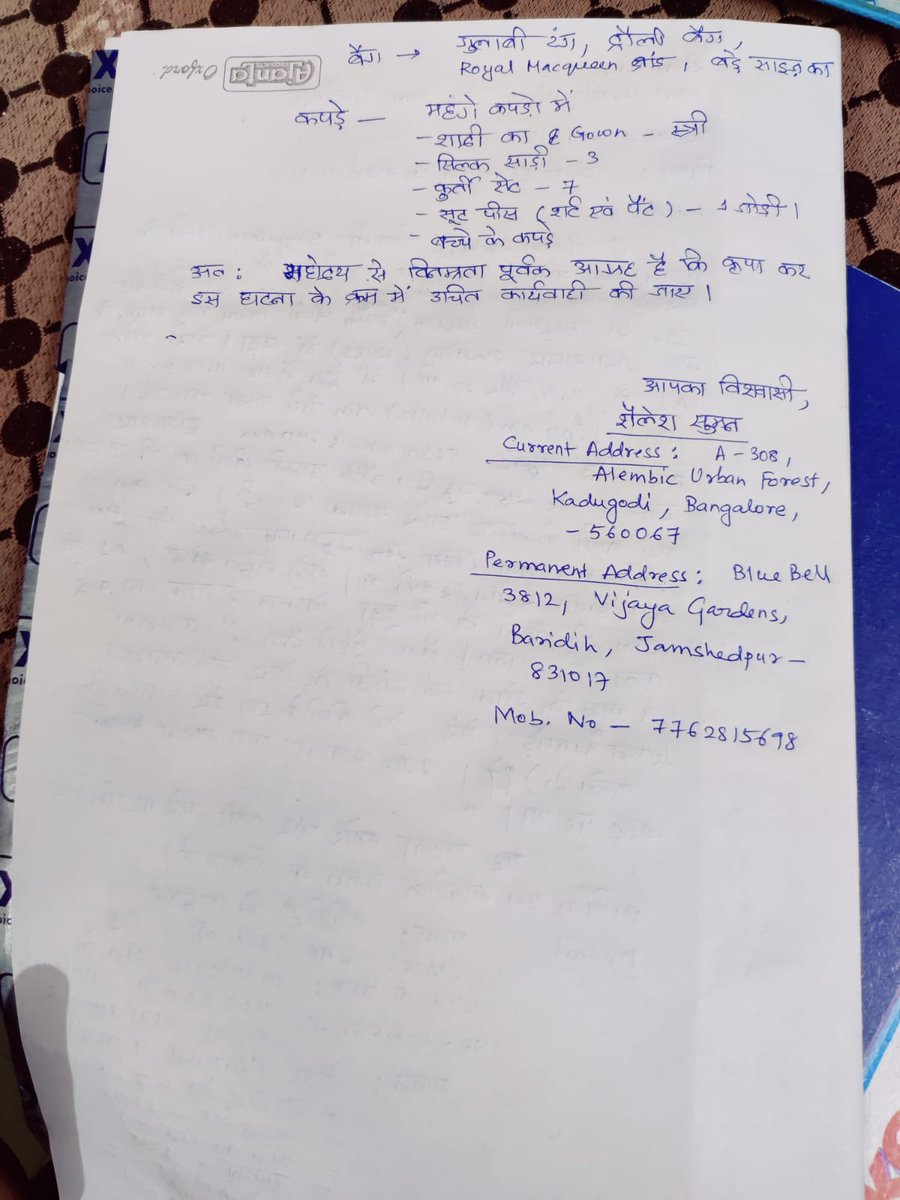 बैग → गुलाबी रंग, ट्रौली बैग,
Royal Macqueen ब्रांड, बड़े साइज़ का
Ajanta
Oxford
कपड़े — महंगे कपड़ो में
- शादी का Gown - स्त्री
- सिल्क साड़ी - 3
- कुर्ती सेट - 7
- सूट पीस (शर्ट एवं पैंट) - 1 जोड़ी।
- बच्चे के कपड़े
अत: महोदय से विनम्रता पूर्वक आग्रह है कि कृपा कर
इस घटना के क्रम में उचित कार्यवाही की जाए।
आपका विश्वासी,
शैलेश सुमन
Current Address: A-308,
Alembic Urban Forest,
Kadugodi, Bangalore,
- 560067
Permanent Address: Blue Bell
3812, Vijaya Gardens,
Baridih, Jamshedpur -
831017
Mob. No - 7762815698